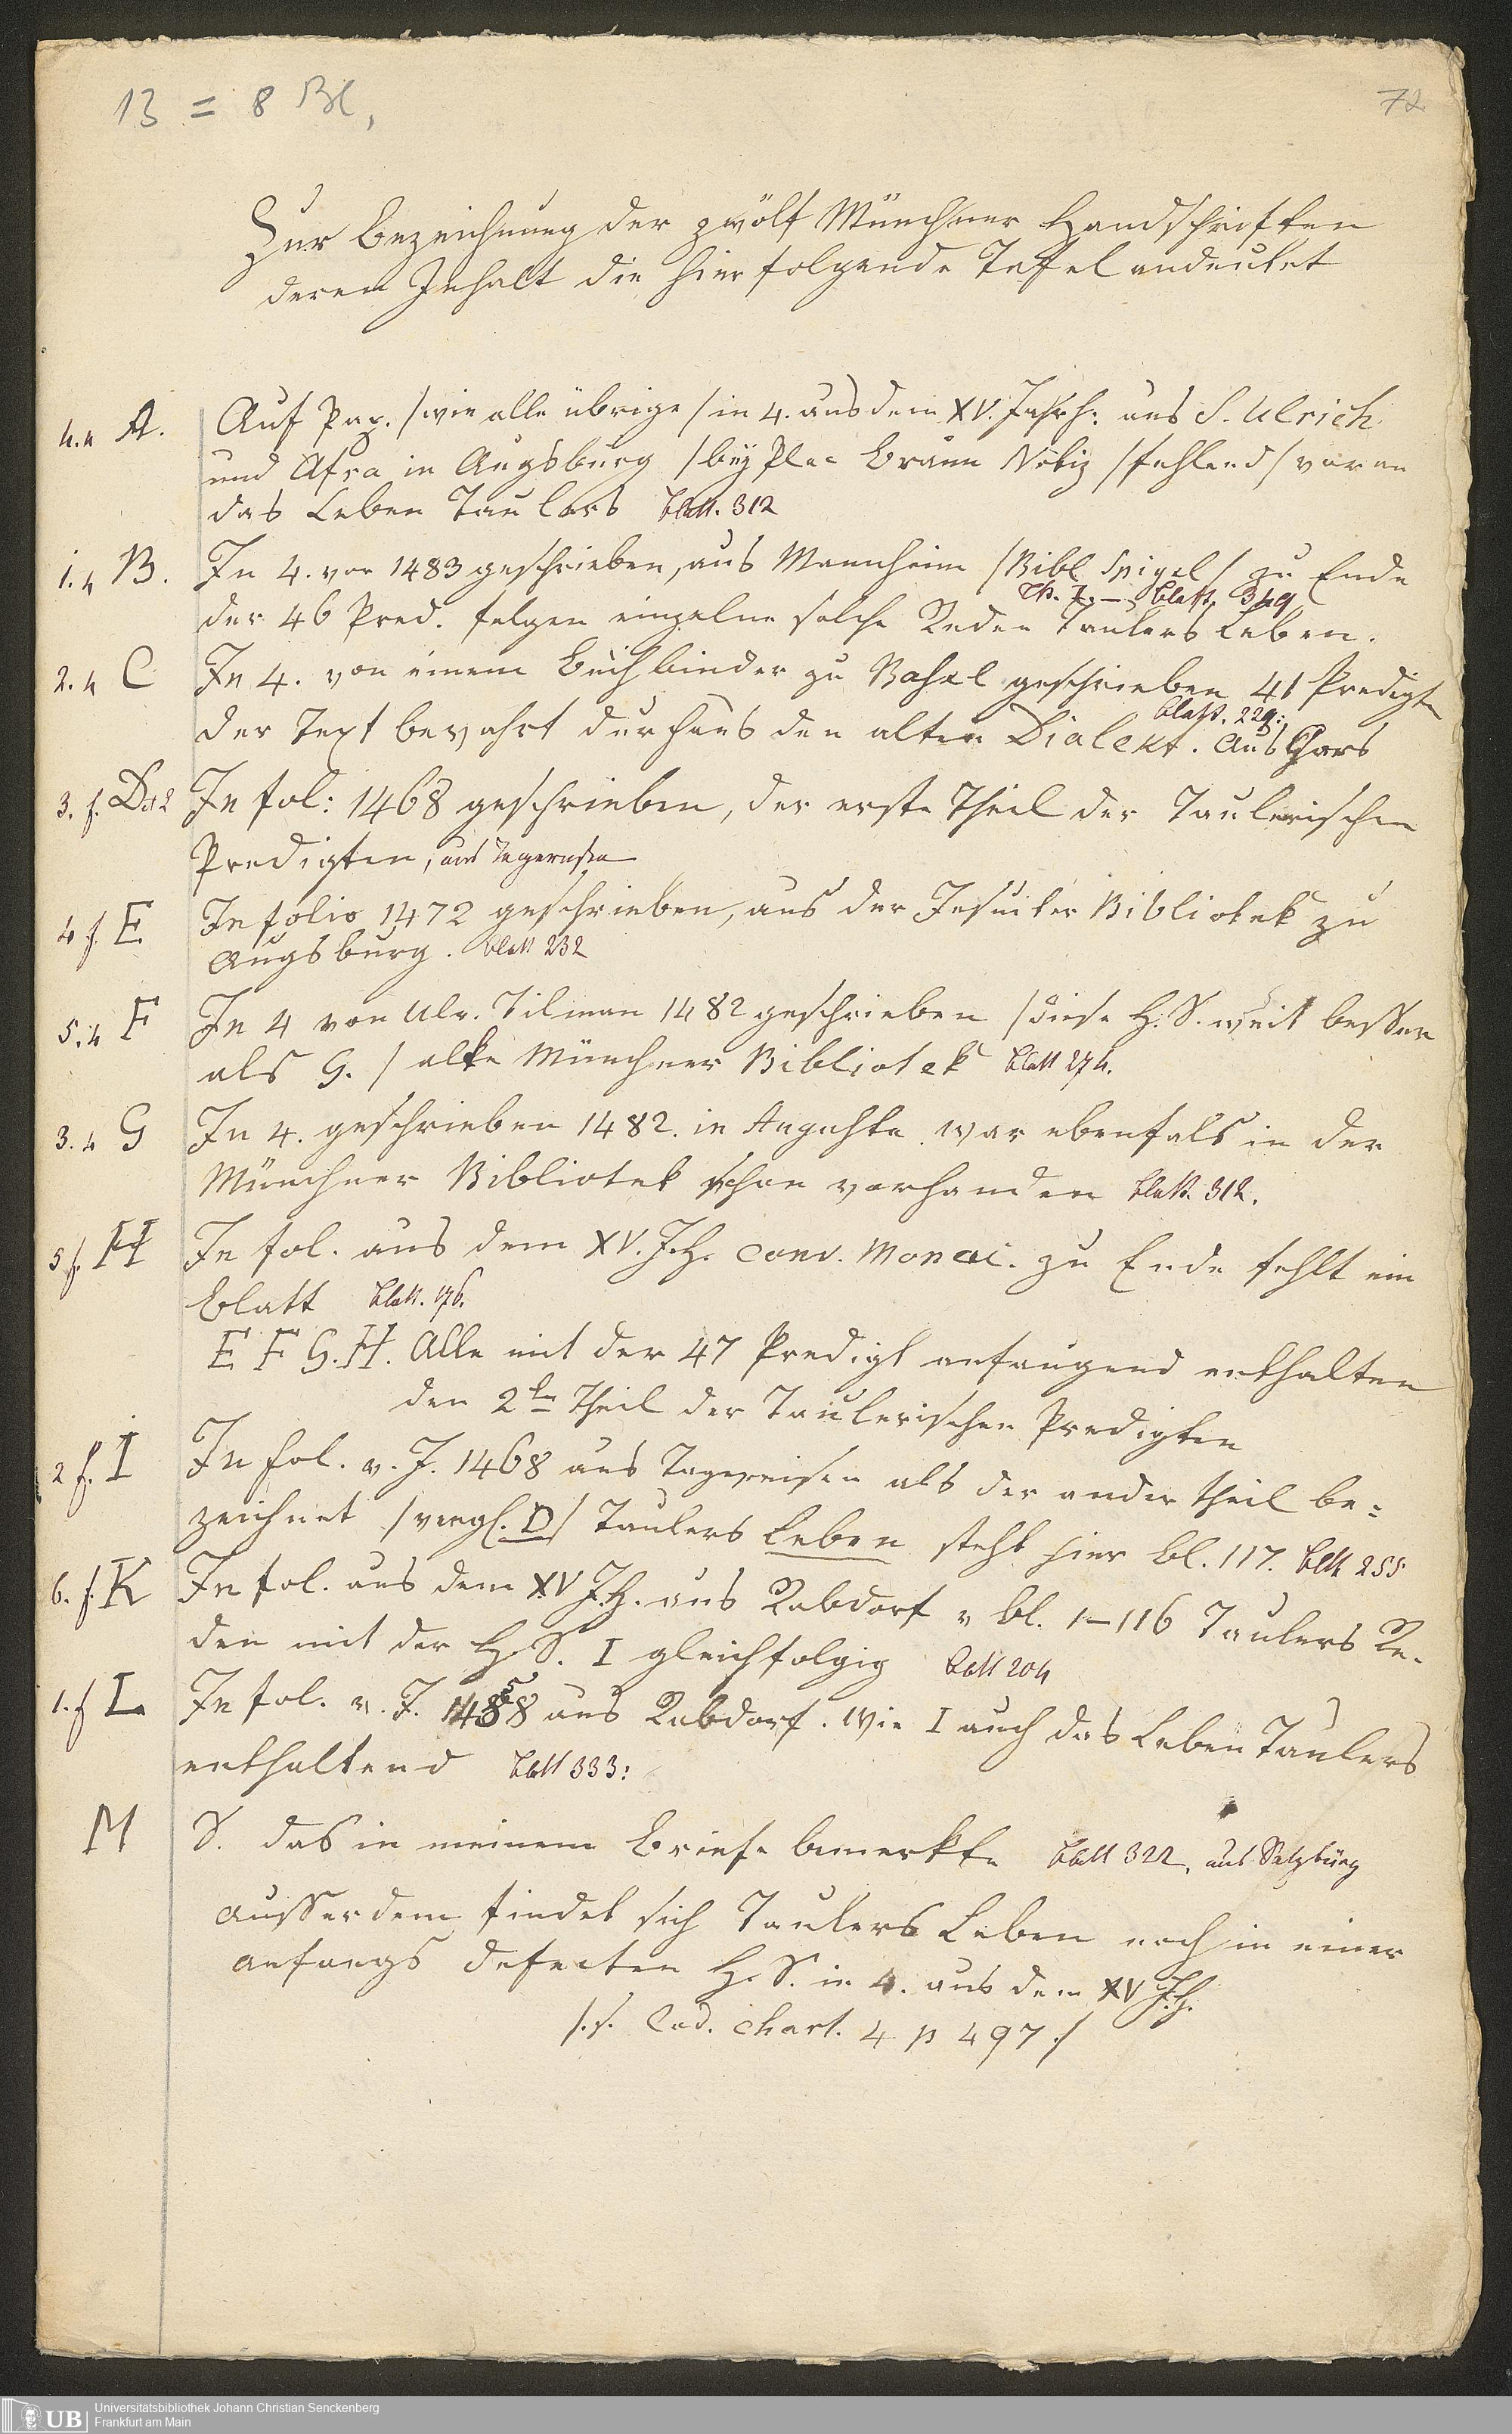 13 = 8 Bl,
72
Zur Bezeichnung der zwölf Münchner Handschriften
deren Inhalt die hier folgende Tafel andeutet
4.4 A. Auf Pap. /wie alle übrige/ in 4. aus dem XV. Jahrh: aus S. Ulrich
und Afra in Augsburg /bey Plac Braun Notiz /fehlend/ voran
das Leben Taulers blatt. 312
1.4 B. In 4. vor 1483 geschrieben, aus Mannheim /Bibl. / zu Ende
Th. I. — blatt. 349
der 46 Pred. folgen einzelne solche Reden Taulers Leben.
2.4 C In 4. von einem Buchbinder zu Basel geschrieben 41 Predigten
blatt. 229:
der Text bewahrt durchaus den alten Dialekt. Aus Gars
3. f. D In fol: 1468 geschrieben, der erste Theil der Taulerischen
Predigten, aus Tegernsee
4 f. E In folio 1472 geschrieben, aus der Jesuiter Bibliotek zu
Augsburg. blatt 232
5.4 F In 4 von Ulr. Tilman 1482 geschrieben /diese H.S. weit besser
als G. / alte Münchner Bibliotek blatt 274.
3.4 G In 4. geschrieben 1482. in Augusto war ebenfals in der
Münchner Bibliotek schon vorhanden blatt. 312.
5 f. H In fol. aus dem XV. J.H. conv. Monac. zu Ende fehlt ein
Blatt blatt. 176.
E F G. H. Alle mit der 47 Predigt anfangend enthalten
den 2ten Theil der Taulerischen Predigten
2 f. I In fol. v. J. 1468 aus als der ander theil be=
zeichnet /vergl. D/ Taulers Leben steht hier bl. 117. blatt 255
6. f. K In fol. aus dem XV J.H. aus Rebdorf v bl. 1–116 Taulers Re-
den mit der H.S. I gleichfolgig blatt 204
1. f L In fol. v. J. 1458 aus Rebdorf. Wie I auch das Leben Taulers
enthaltend blatt 333:
M S. das in meinem Briefe bemerkte blatt 322, aus Salzburg
Ausserdem findet sich Taulers Leben noch in einer
anfangs defecten H.S. in 4. aus dem XV J.H.
/.s. Cod. chart. 4 p 497./
UB Universitätsbibliothek Johann Christian Senckenberg
Frankfurt am Main